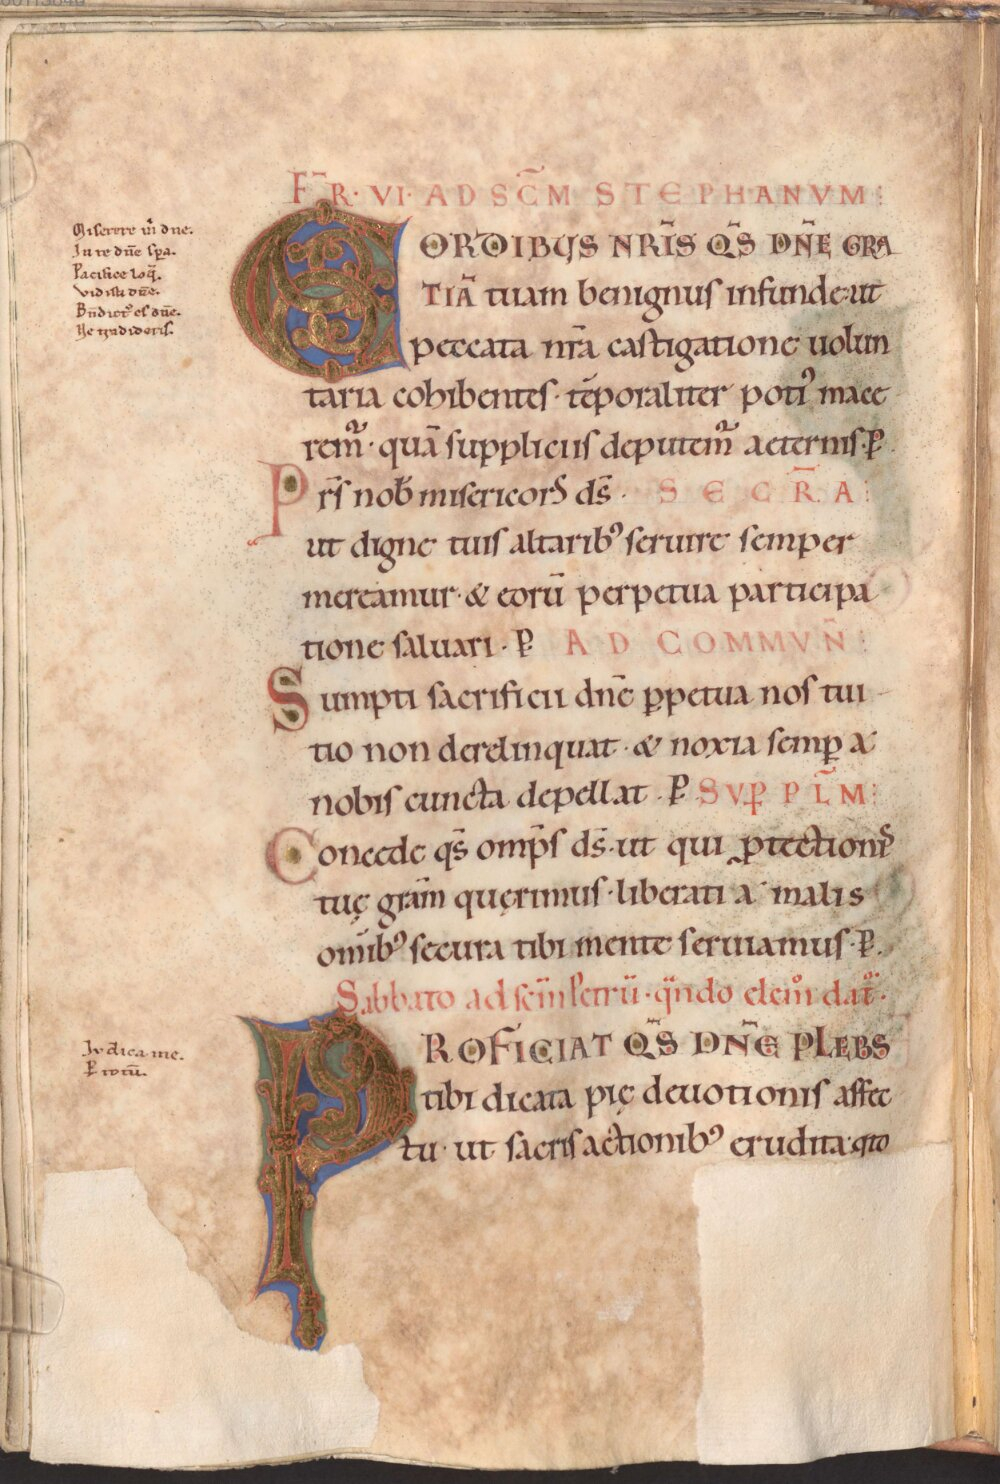 F̄R·VI·AD SC̄M STEPHANVM:
Miserere m̄ dne.
In te dn̄e spa.
Pacifice loq̄.
vidisti dn̄e.
Bn̄dict᾽ es dn̄e.
Ne tradideris.
CORDIBUS NR̄IS QS̄ DN̄E GRA
TIĀ tuam benignus infunde· ut
peccata nr̄a castigatione uolun
taria cohibentes· tēporaliter poti᾽ mace
rem᷑· quā suppliciis deputem᷑ aeternis· ꝑ
Prs̄ nob̄ misericors ds̄· SECR̄A:
ut digne tuis altarib᾽ seruire semper
mereamur· & eorū perpetua participa
tione saluari· ꝑ AD COMMVN̄:
Sumpti sacrificii dn̄e ꝑpetua nos tui
tio non derelinquat· & noxia semꝑ a
nobis cuncta depellat· ꝑ SVꝑ PL̄M:
Concede qs̄ omp̄s ds̄· ut qui protectionis
tuę grām quęrimus· liberati a malis
om̄ib᾽ secura tibi mente seruiamus· ꝑ.
Sabbato ad scm̄ Petrū· qn̄do elem̄ dat᷑·
Judica me.
ꝑ totū.
PROFICIAT QS̄ DN̄E PLEBS
tibi dicata pię deuotionis affec
tu· ut sacris actionib᾽ erudita· q̇to